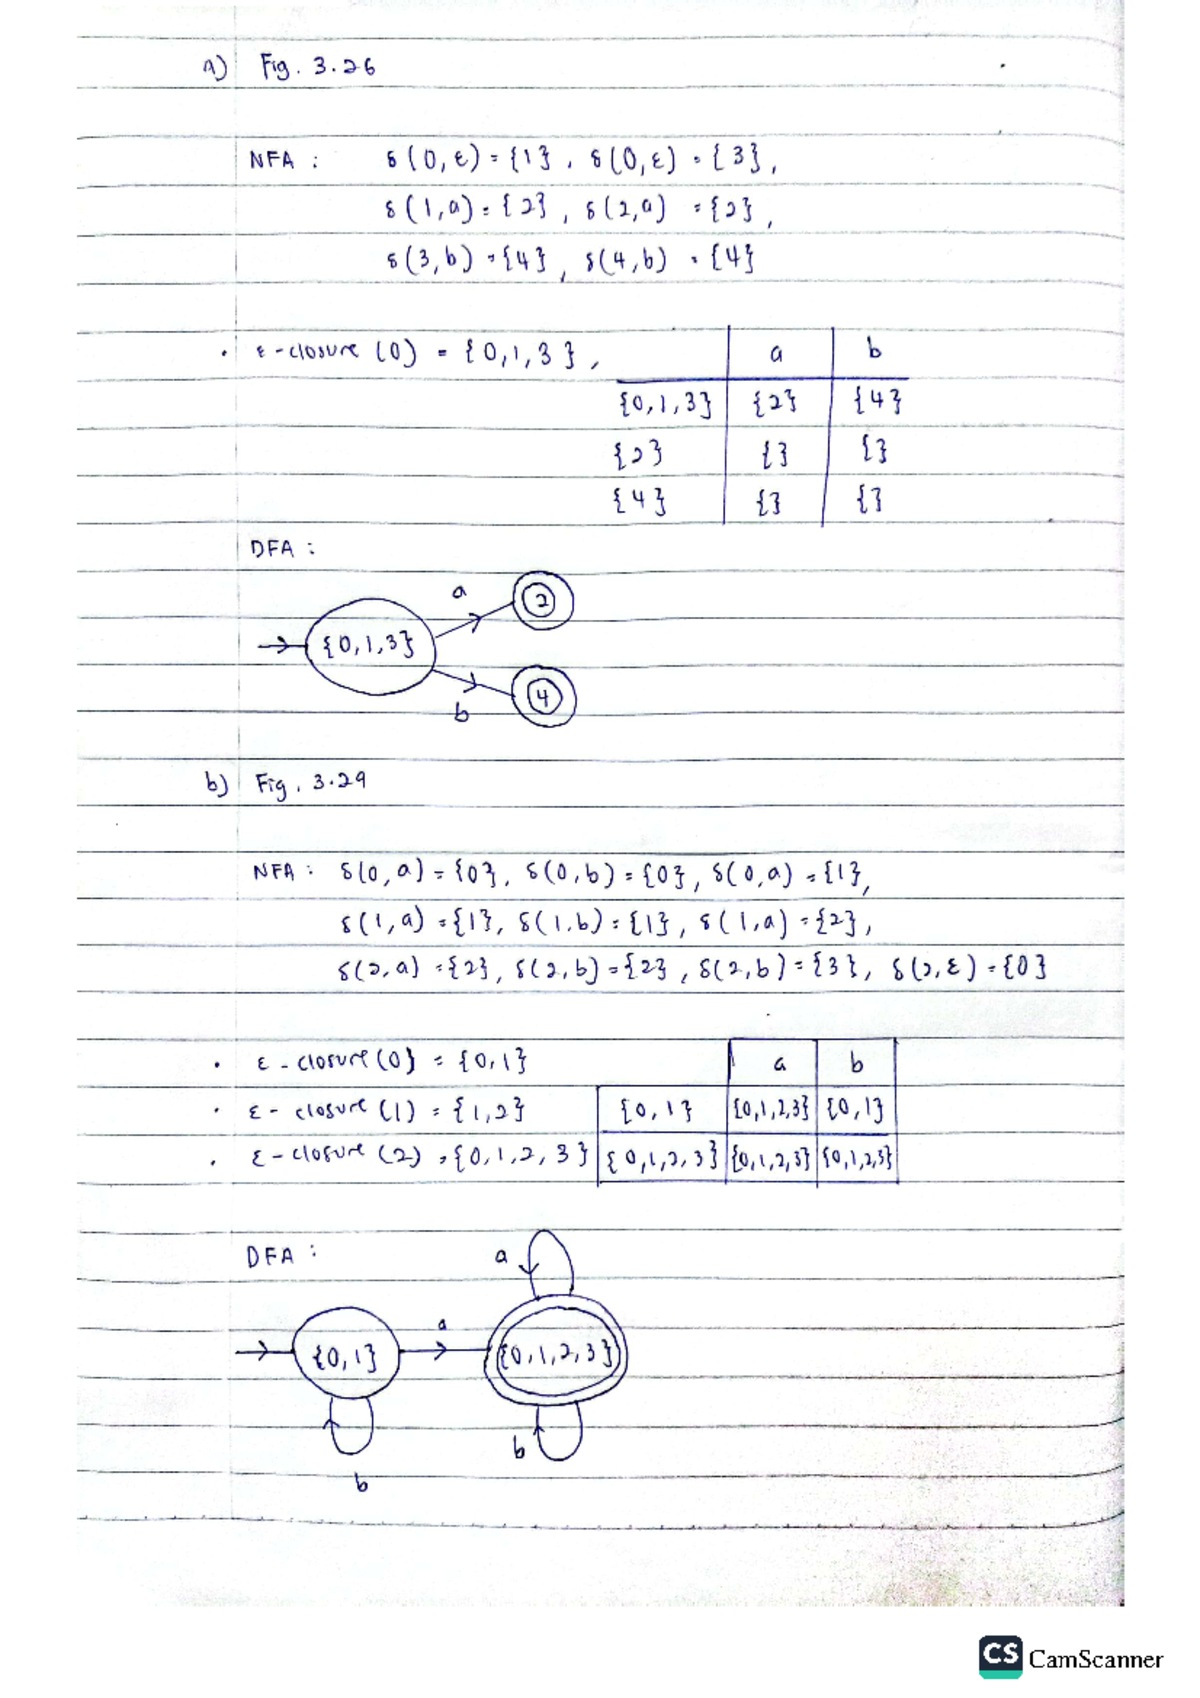 a) Fig. 3.26
NFA : δ(0,ε) = {1}, δ(0,ε) = {3},
δ(1,a) = {2}, δ(2,a) = {2},
δ(3,b) = {4}, δ(4,b) = {4}
• ε-closure (0) = {0,1,3},
a b
{0,1,3} {2} {4}
{2} {} {}
{4} {} {}
DFA :
a
2
{0,1,3}
4
b
b) Fig. 3.29
NFA : δ(0,a) = {0}, δ(0,b) = {0}, δ(0,a) = {1},
δ(1,a) = {1}, δ(1,b) = {1}, δ(1,a) = {2},
δ(2,a) = {2}, δ(2,b) = {2}, δ(2,b) = {3}, δ(2,ε) = {0}
• ε-closure(0} = {0,1}
a b
• ε-closure (1) = {1,2}
{0,1} {0,1,2,3} {0,1}
• ε-closure (2) = {0,1,2,3}
{0,1,2,3} {0,1,2,3} {0,1,2,3}
DFA :
a
a
{0,1} {0,1,2,3}
b
b
CS CamScanner